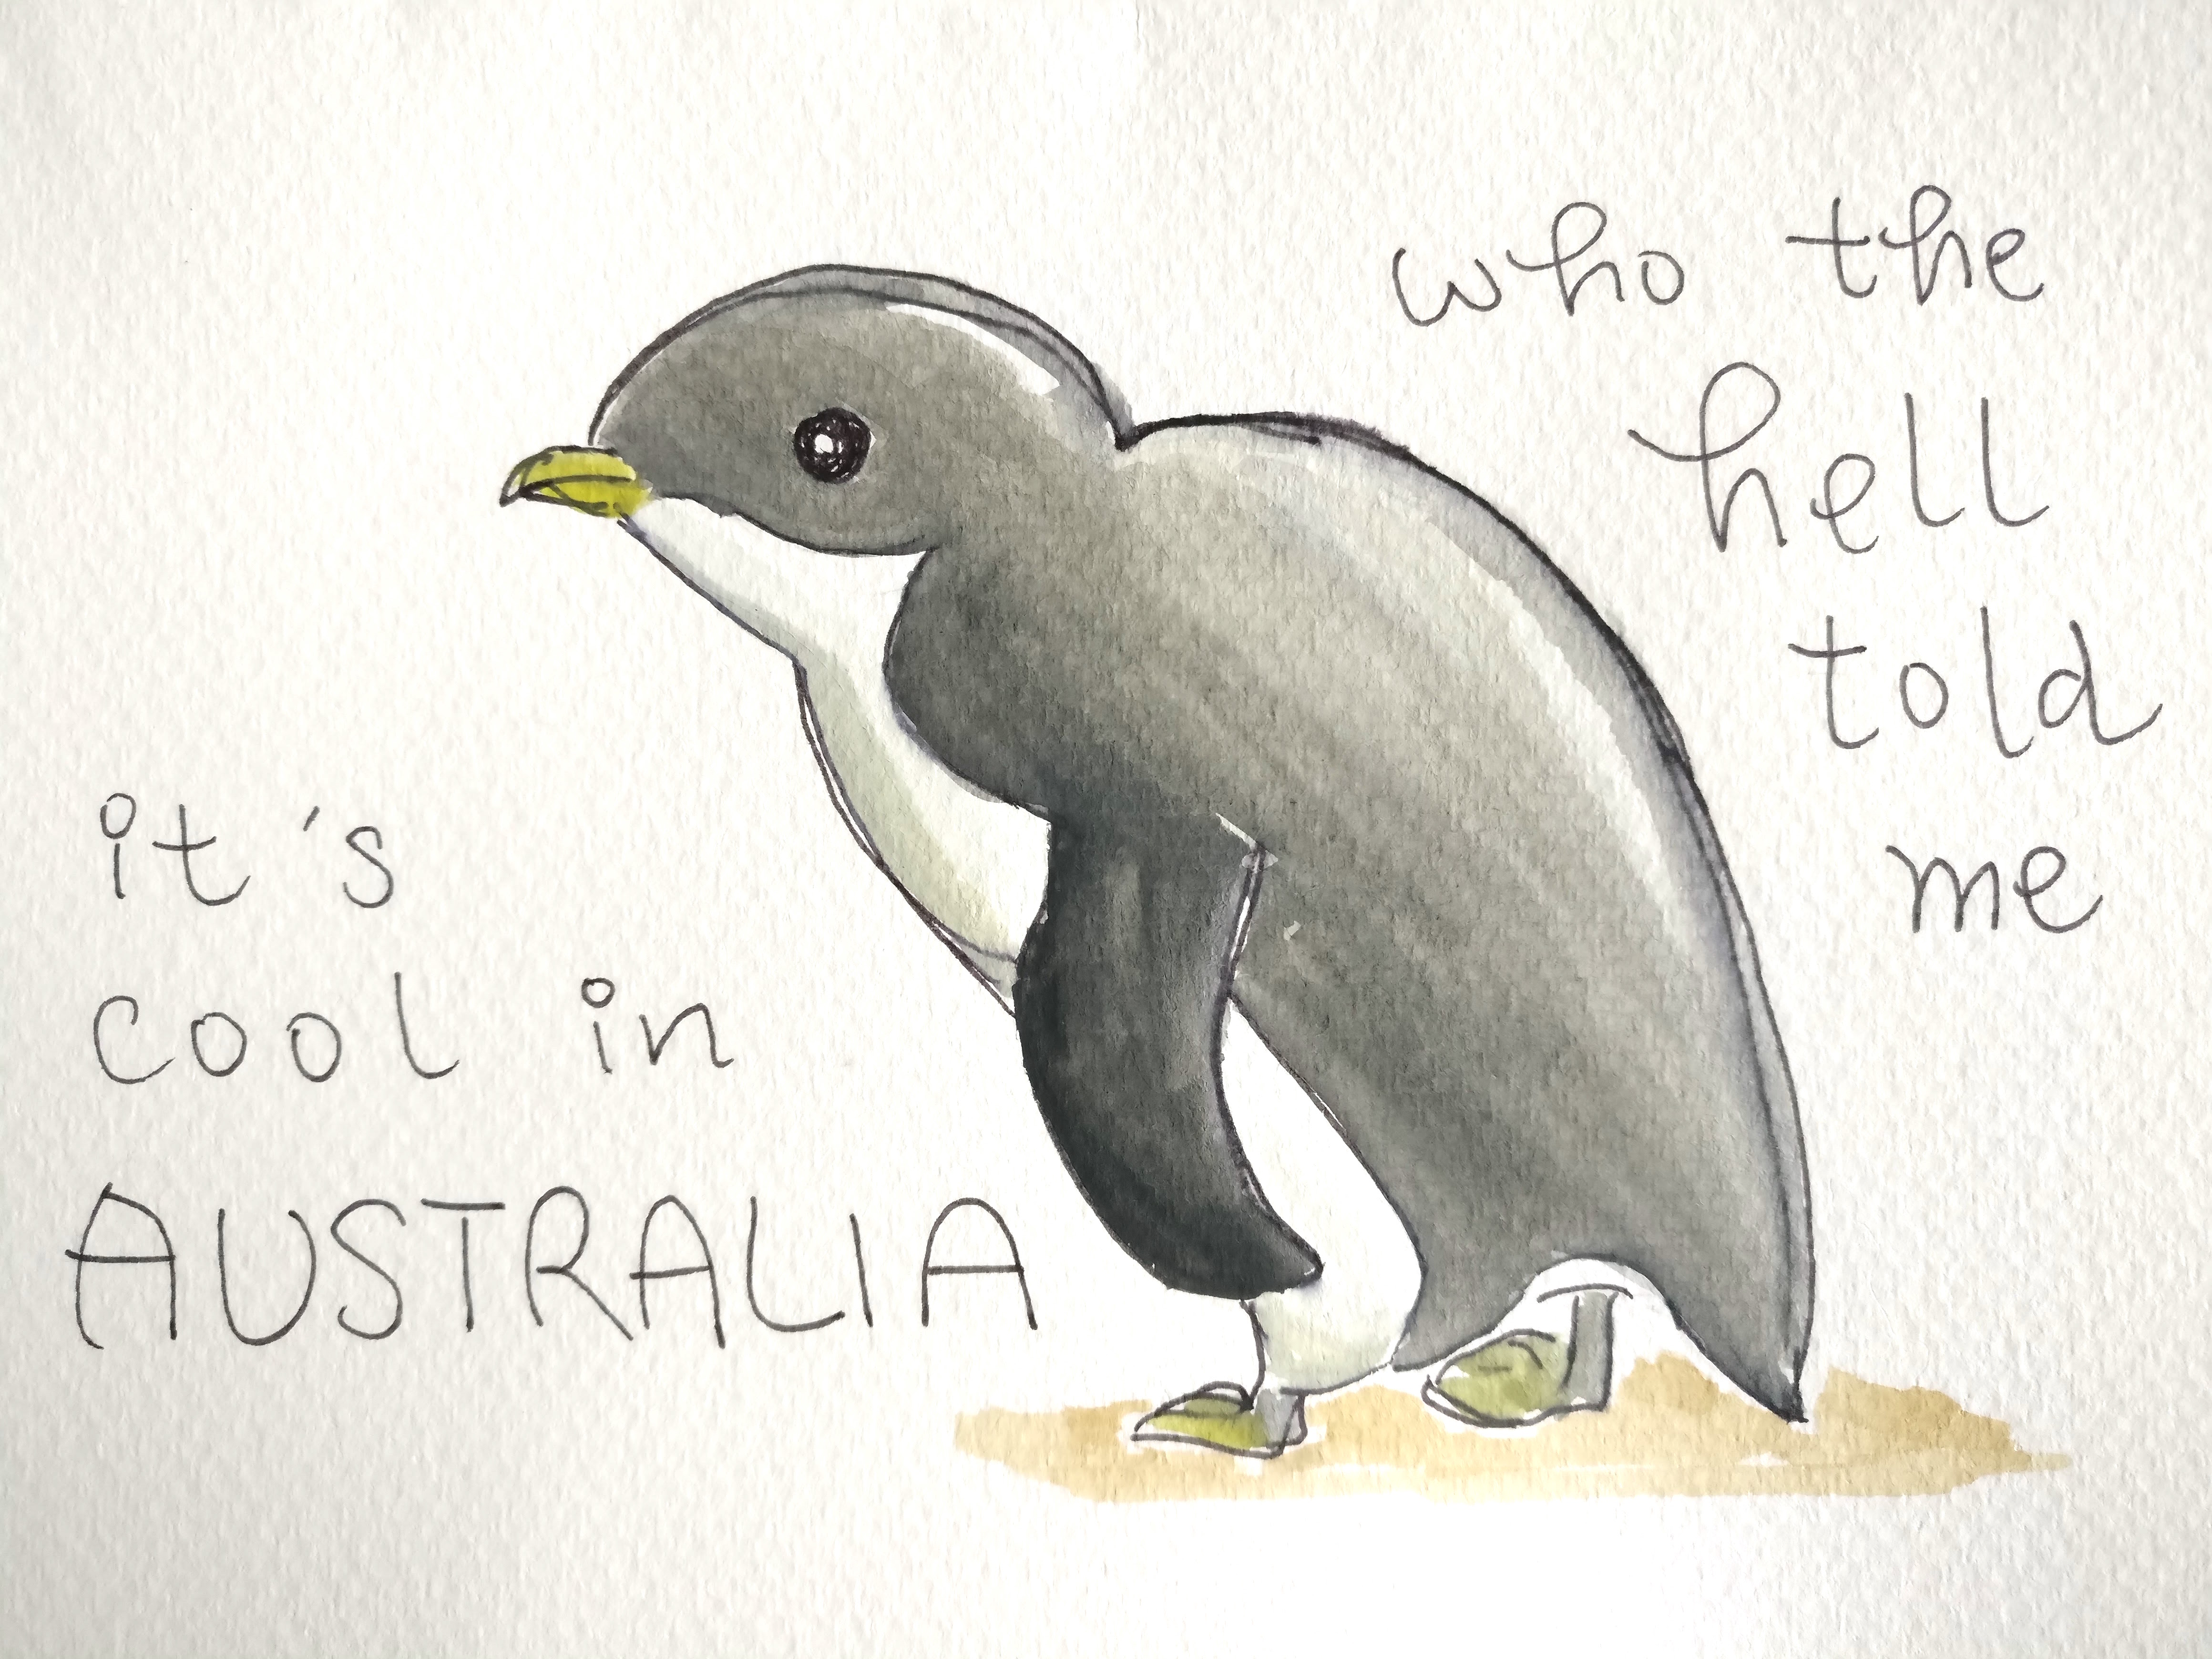 who the
hell
told
me
it's
cool in
AUSTRALIA